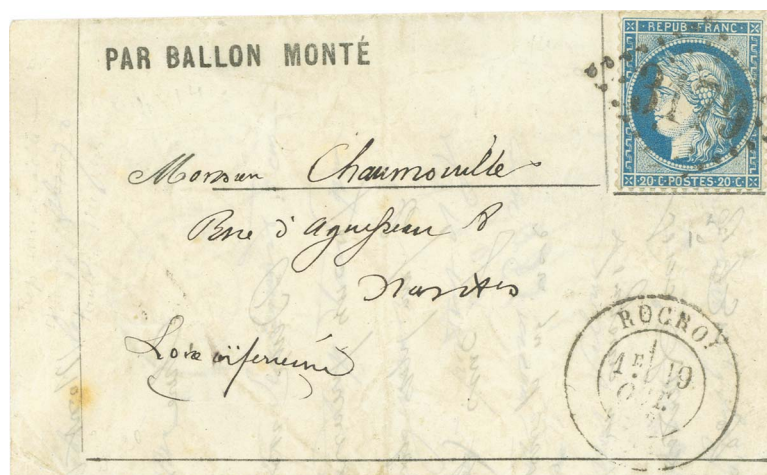 PAR BALLON MONTÉ
REPUB·FRANC·
3179
20·C·POSTES·20·C·
Monsieur Chaumouille
Rue d'Aguesseau 8
Nantes
Loire inférieure
ROCROI
1E 19
OCT.